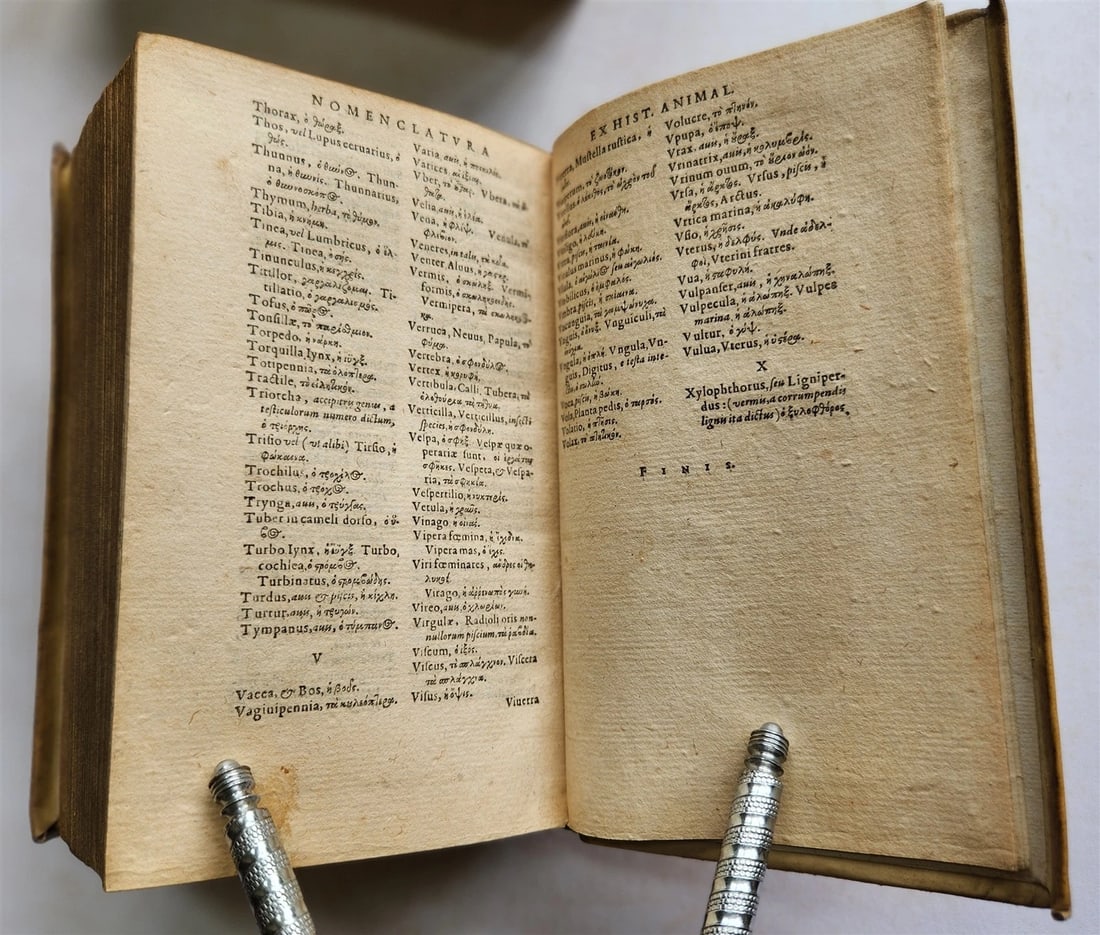 NOMENCLATVRA
Thorax, ὁ θώραξ.
Thos, vel Lupus ceruarius, ὁ
θώς.
Thunnus, ὁ θύννος. Thun-
na, ἡ θυννίς. Thunnarius,
ὁ θυννοσκόπος.
Thymum, herba, τὸ θύμον.
Tibia, ἡ κνήμη.
Tinea, vel Lumbricus, ὁ ἑλ-
μις. Tinea, ὁ σής.
Tinunculus, ἡ κεγχρίς.
Titillor, γαργαλίζομαι. Ti-
tillatio, ὁ γαργαλισμός.
Tofus, ὁ πῶρος.
Tonsillæ, τὸ παρίσθμιον.
Torpedo, ἡ νάρκη.
Torquilla, Iynx, ἡ ἴυγξ.
Totipennia, τὰ ὁλόπτερα.
Tractile,
Triorcha, accipitris genus, a
testiculorum numero dictum,
ὁ τριόρχης.
Trisio vel (vt alibi) Tirsio, ἡ
φώκαινα.
Trochilus, ὁ τροχίλος.
Trochus, ὁ τροχός.
Trynga, auis, ὁ τρύγγας.
Tuber in cameli dorso, ὁ ὕ-
βος.
Turbo Iynx, ἡ ἴυγξ. Turbo,
cochlea, ὁ στρόμβος.
Turbinatus, ὁ στρομβώδης.
Turdus, auis & piscis, ἡ κίχλη.
Turtur, auis, ἡ τρυγών.
Tympanus, auis, ὁ τύμπανος.
V
Vacca, & Bos, ἡ βοῦς.
Vaginipennia, τὰ κολεόπτερα.
Varia, auis, ἡ ποικιλίς.
Varices,
Vber, Vbera,
Velia, auis, ἡ ἐλέα.
Vena, ἡ φλέψ. Venula, τὸ
φλέβιον.
Veneres, in talis, τὰ κῶα.
Venter Aluus, ἡ γαστήρ.
Vermis, ὁ σκώληξ. Vermi-
formis, ὁ σκωληκοειδής.
Vermipera,
Verruca, Neuus, Papula, τὸ
φῦμα.
Vertebra, ὁ σφόνδυλος.
Vertex, ἡ κορυφή.
Vertibula, Calli, Tubera,
ὁλοθούρια, τὰ τήθυα.
Verticilla, Verticillus, insecti
species, ἡ σφονδύλη.
Vespa, ὁ σφήξ. Vespæ quæ o-
peratiæ sunt, οἱ ἐργάται
σφῆκες. Vespeta, & Vespa-
ria, τὰ σφηκία.
Vespertilio, ἡ νυκτερίς.
Vetula, ἡ γραῦς.
Vinago, ἡ οἰνάς.
Vipera fœmina, ἡ ἔχιδνα.
Vipera mas, ὁ ἔχις.
Viri fœminates, ἄνδρες οἱ θη-
λυκοί.
Virago, ἡ ἀῤῥενωπὸς γυνή.
Vireo, auis, ὁ χλωρίων.
Virgulæ, Radioli oris non-
nullorum piscium, τὰ ῥαβδία.
Viscum, ὁ ἰξός.
Viscus, τὸ σπλάγχνον. Viscera
τὰ σπλάγχνα.
Visus, ἡ ὄψις.
Viuerra
EX HIST. ANIMAL.
Mustella rustica, ἡ
Vitulus marinus, ἡ φώκη.
Vmbilicus, ὁ ὀμφαλός.
piscis, ἡ σκίαινα.
τὰ γαμψώνυχα.
Vnguis, ὁ ὄνυξ. Vnguiculi, τὰ
ὀνύχια.
Vngula, ἡ ὁπλή. Vngula, Vn-
guis, Digitus, e testa inte-
Voca, piscis, ἡ βῶκη.
Vola, Planta pedis, ὁ ταρσός.
Volatio, ἡ πτῆσις.
Volax, τὸ πτητικόν.
Volucre, τὸ πτηνόν.
Vpupa, ὁ ἔποψ.
Vrax, auis, ἡ ὕραξ.
Vrinatrix, auis, ἡ κολυμβρίς.
Vrinum ouum, τὸ οὔριον ὠόν.
Vrsa, ἡ ἄρκτος. Vrsus, piscis, ὁ
ἄρκτος, Arctus.
Vrtica marina, ἡ ἀκαλήφη.
Vsio, ἡ χρῆσις.
Vterus, ἡ δελφύς. Vnde ἀδελ-
φοί, Vterini fratres.
Vua, ἡ σταφυλή.
Vulpanser, auis, ἡ χηναλώπηξ.
Vulpecula, ἡ ἀλώπηξ. Vulpes
marina, ἡ ἀλώπηξ.
Vultur, ὁ γύψ.
Vulua, Vterus, ἡ ὑστέρα.
X
Xylophthorus, seu Ligniper-
dus: (vermis, a corrumpendis
lignis ita dictus) ὁ ξυλοφθόρος.
FINIS.